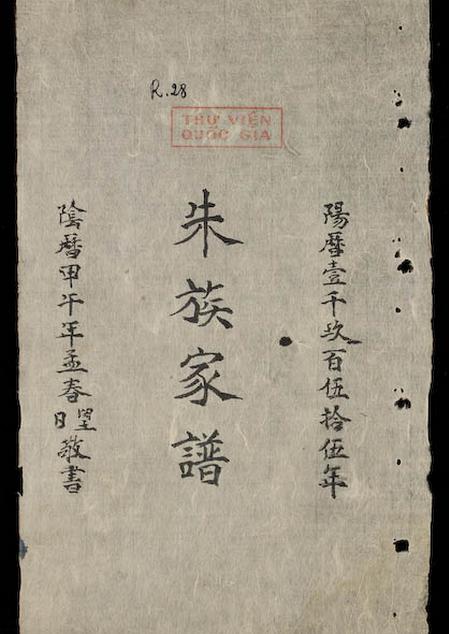 R.28
THƯ VIỆN
QUỐC GIA
陽曆壹千玖百伍拾伍年
朱族家譜
陰曆甲午年孟春望日敬書